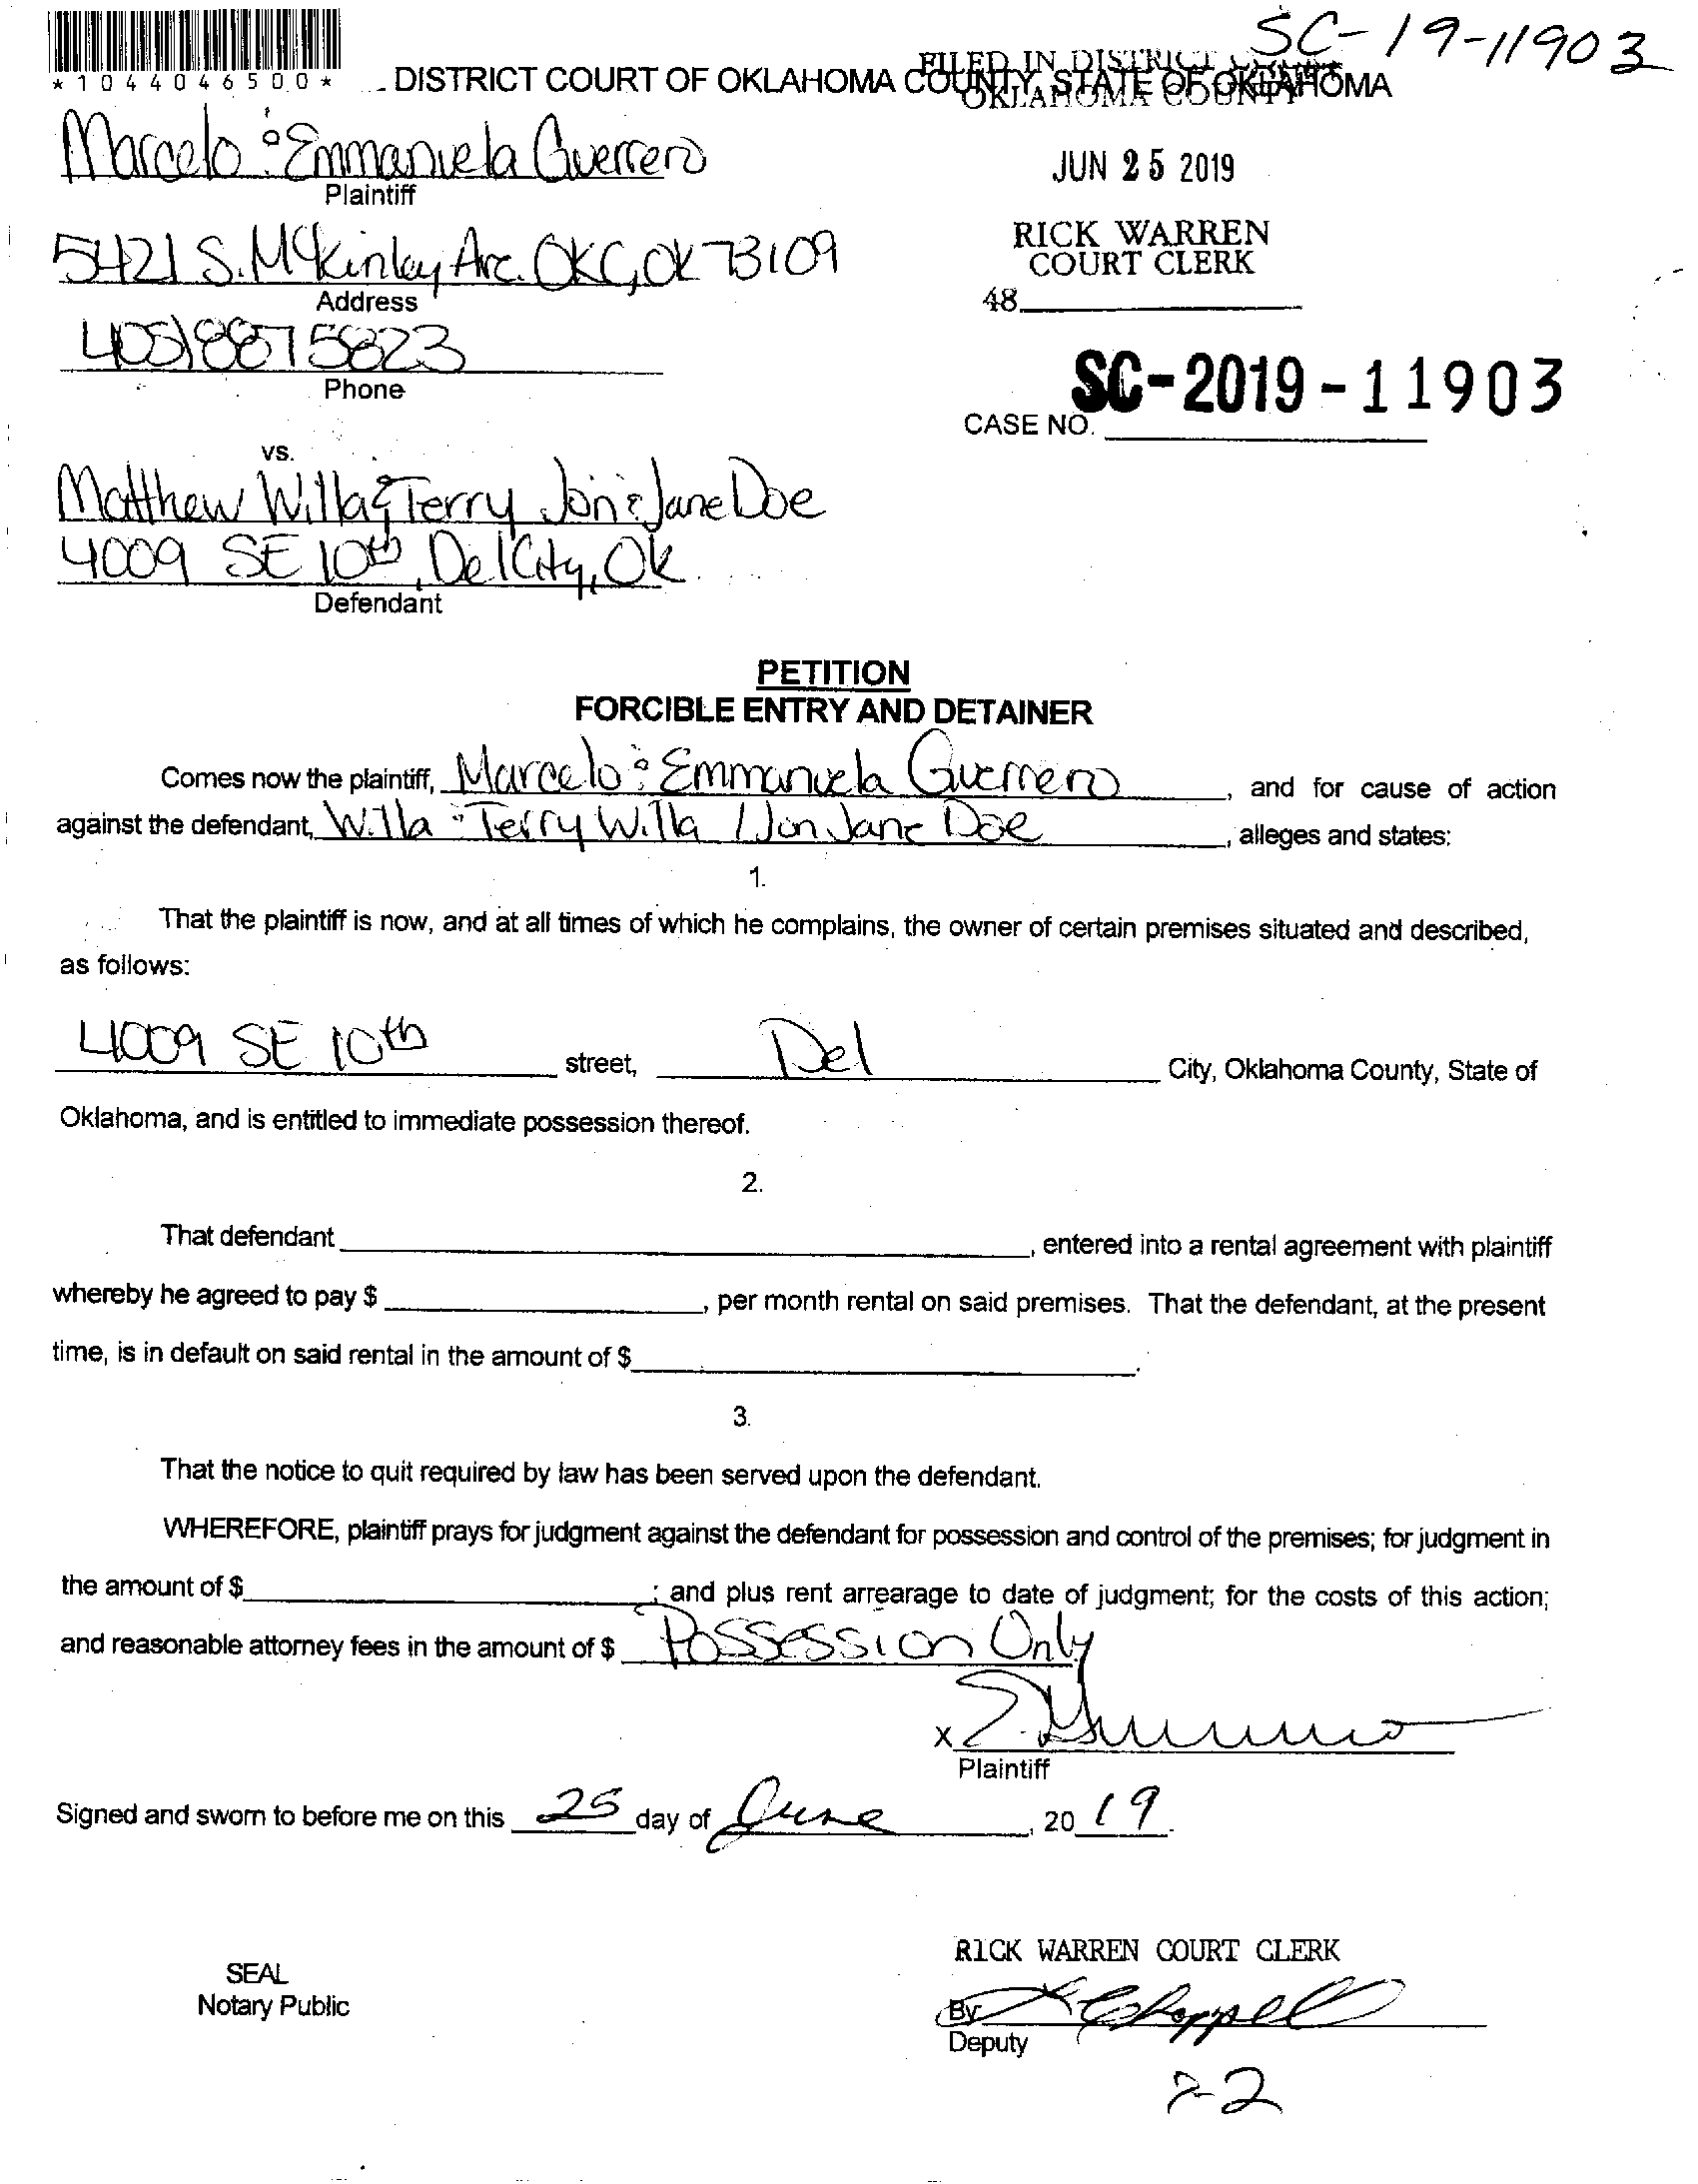 SC-19-11903
*1044046500*
DISTRICT COURT OF OKLAHOMA COUNTY, STATE OF OKLAHOMA
FILED IN DISTRICT COURT
OKLAHOMA COUNTY
Marcelo & Emmanuela Guerrero
Plaintiff
JUN 25 2019
5421 S. McKinley Ave. OKC, OK 73109
Address
RICK WARREN
COURT CLERK
48
405)8875823
Phone
SC-2019-11903
CASE NO.
vs.
Matthew Willa & Terry Jon & Jane Doe
4009 SE 10th, Del City, Ok
Defendant
PETITION
FORCIBLE ENTRY AND DETAINER
Comes now the plaintiff, Marcelo & Emmanuela Guerrero, and for cause of action
against the defendant, Willa & Terry Willa / Jon Jane Doe, alleges and states:
1.
That the plaintiff is now, and at all times of which he complains, the owner of certain premises situated and described,
as follows:
4009 SE 10th street, Del City, Oklahoma County, State of
Oklahoma, and is entitled to immediate possession thereof.
2.
That defendant , entered into a rental agreement with plaintiff
whereby he agreed to pay $ , per month rental on said premises. That the defendant, at the present
time, is in default on said rental in the amount of $ .
3.
That the notice to quit required by law has been served upon the defendant.
WHEREFORE, plaintiff prays for judgment against the defendant for possession and control of the premises; for judgment in
the amount of $ ; and plus rent arrearage to date of judgment; for the costs of this action;
and reasonable attorney fees in the amount of $ Possession Only
x E. Guerrero
Plaintiff
Signed and sworn to before me on this 25 day of June, 2019.
RICK WARREN COURT CLERK
SEAL
Notary Public
By Chappell
Deputy
7-2